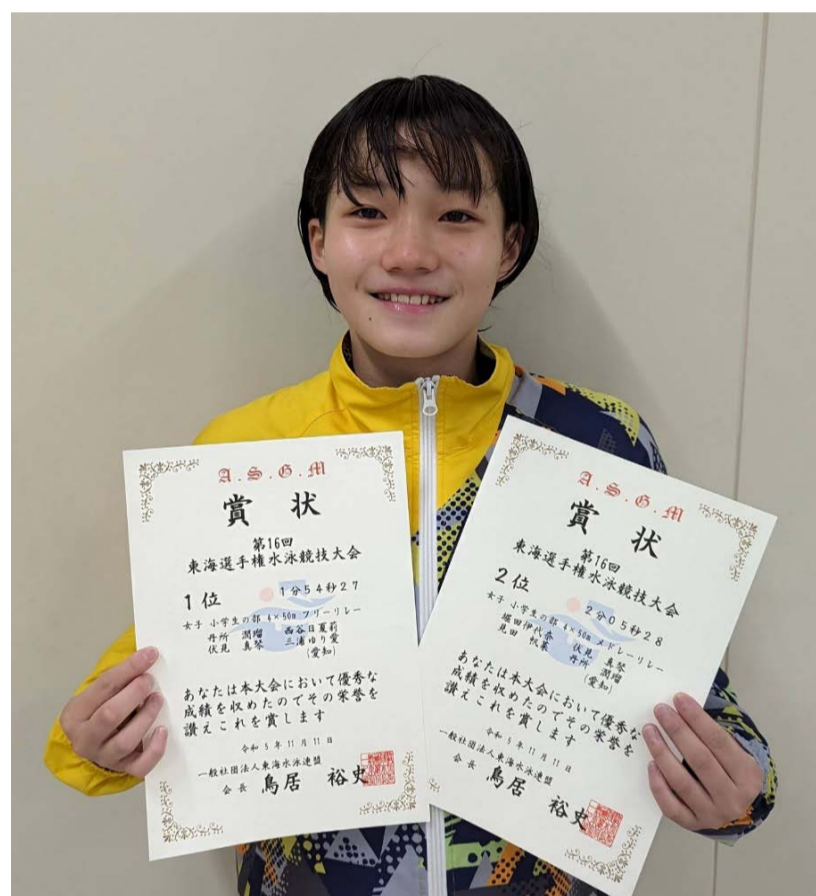 A.S.G.M
賞状
第16回
東海選手権水泳競技大会
1位 1分54秒27
女子 小学生の部 4×50m フリーリレー
丹所 潤瑠 西谷日夏莉
伏見 真琴 三浦ゆり愛
(愛知)
あなたは本大会において優秀な
成績を収めたのでその栄誉を
讃えこれを賞します
令和5年11月11日
一般社団法人東海水泳連盟
会長 鳥居 裕史
A.S.G.M
賞状
第16回
東海選手権水泳競技大会
2位 2分05秒28
女子 小学生の部 4×50m メドレーリレー
堀田伊代奈 伏見 真琴
見田 丹所 潤瑠
(愛知)
あなたは本大会において優秀な
成績を収めたのでその栄誉を
讃えこれを賞します
令和5年11月11日
一般社団法人東海水泳連盟
会長 鳥居 裕史